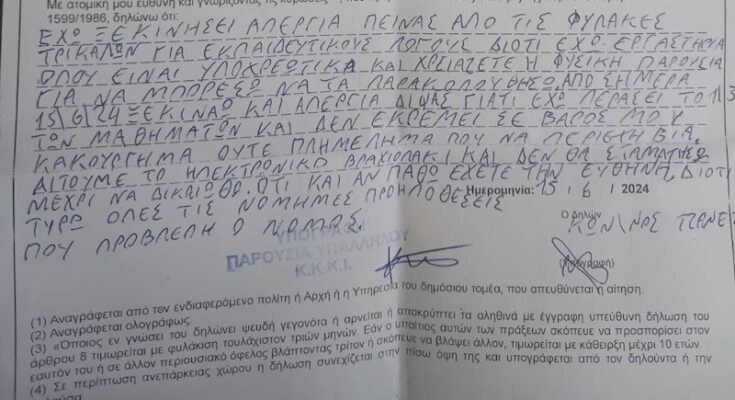 Με ατομική μου ευθύνη και γνωρίζοντας τις κυρώσεις
1599/1986, δηλώνω ότι:
ΕΧΩ ΞΕΚΙΝΗΣΕΙ ΑΠΕΡΓΙΑ ΠΕΙΝΑΣ ΑΠΟ ΤΙΣ ΦΥΛΑΚΕΣ
ΤΡΙΚΑΛΩΝ ΓΙΑ ΕΚΠΑΙΔΕΥΤΙΚΟΥΣ ΛΟΓΟΥΣ ΔΙΟΤΙ ΕΧΩ ΕΡΓΑΣΤΗΡΙΑ
ΟΠΟΥ ΕΙΝΑΙ ΥΠΟΧΡΕΩΤΙΚΑ ΚΑΙ ΧΡΕΙΑΖΕΤΕ Η ΦΥΣΙΚΗ ΠΑΡΟΥΣΙΑ
ΓΙΑ ΝΑ ΜΠΟΡΕΣΩ ΝΑ ΤΑ ΠΑΡΑΚΟΛΟΥΘΗΣΩ, ΑΠΟ ΣΗΜΕΡΑ
15/6/24 ΞΕΚΙΝΑΩ ΚΑΙ ΑΠΕΡΓΙΑ ΔΙΨΑΣ ΓΙΑΤΙ ΕΧΩ ΠΕΡΑΣΕΙ ΤΟ 1/3
ΤΩΝ ΜΑΘΗΜΑΤΩΝ ΚΑΙ ΔΕΝ ΕΚΡΕΜΕΙ ΣΕ ΒΑΡΟΣ ΜΟΥ
ΚΑΚΟΥΡΓΗΜΑ ΟΥΤΕ ΠΛΗΜΕΛΗΜΑ ΠΟΥ ΝΑ ΠΕΡΙΕΧΗ ΒΙΑ.
ΑΙΤΟΥΜΕ ΤΟ ΗΛΕΚΤΡΟΝΙΚΟ ΒΡΑΧΙΟΛΑΚΙ ΚΑΙ ΔΕΝ ΘΑ ΣΤΑΜΑΤΗΣΩ
ΜΕΧΡΙ ΝΑ ΔΙΚΑΙΩΘΩ. ΟΤΙ ΚΑΙ ΑΝ ΠΑΘΩ ΕΧΕΤΕ ΤΗΝ ΕΥΘΗΝΑ, ΔΙΟΤΙ
Ημερομηνία: 15 / 6 / 2024
ΤΥΡΩ ΟΛΕΣ ΤΙΣ ΝΟΜΗΜΕΣ ΠΡΟΗΠΟΘΕΣΕΙΣ
ΠΟΥ ΠΡΟΒΛΕΠΗ Ο ΝΟΜΟΣ.
Ο Δηλών
ΚΩΝ/ΝΟΣ
ΥΠΟΓΡΑΦΗ
ΠΑΡΟΥΣΙΑ ΥΠΑΛΛΗΛΟΥ
Κ.Κ.Κ.Ι.
(Υπογραφή)
(1) Αναγράφεται από τον ενδιαφερόμενο πολίτη ή Αρχή ή η Υπηρεσία του δημόσιου τομέα, που απευθύνεται η αίτηση.
(2) Αναγράφεται ολογράφως.
(3) «Όποιος εν γνώσει του δηλώνει ψευδή γεγονότα ή αρνείται ή αποκρύπτει τα αληθινά με έγγραφη υπεύθυνη δήλωση του
άρθρου 8 τιμωρείται με φυλάκιση τουλάχιστον τριών μηνών. Εάν ο υπαίτιος αυτών των πράξεων σκόπευε να προσπορίσει στον
εαυτόν του ή σε άλλον περιουσιακό όφελος βλάπτοντας τρίτον ή σκόπευε να βλάψει άλλον, τιμωρείται με κάθειρξη μέχρι 10 ετών.
(4) Σε περίπτωση ανεπάρκειας χώρου η δήλωση συνεχίζεται στην πίσω όψη της και υπογράφεται από τον δηλούντα ή την